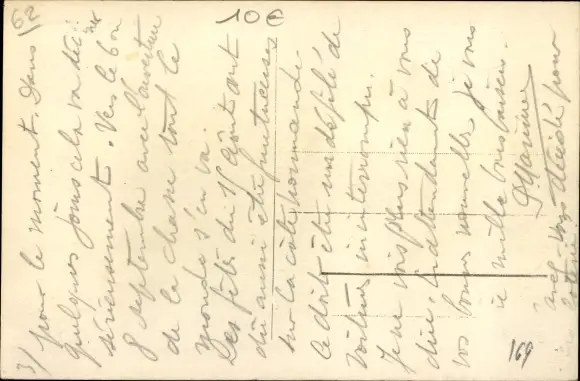 3/ pour le moment. Dans
quelques jours cela va
sérieusement. Vers le bon
8 septembre avec l'ouverture
de la chasse tout le
monde s'en va.
Les fêtes du 15 août ont
dû aussi être
sur la côte normande.
Ce doit être un défilé de
voitures ininterrompu.
Je ne vois plus rien à vous
dire. En attendant de
vos bonnes nouvelles, je vous
mille bons baisers.
avez vous décidé pour
62
10 €
169